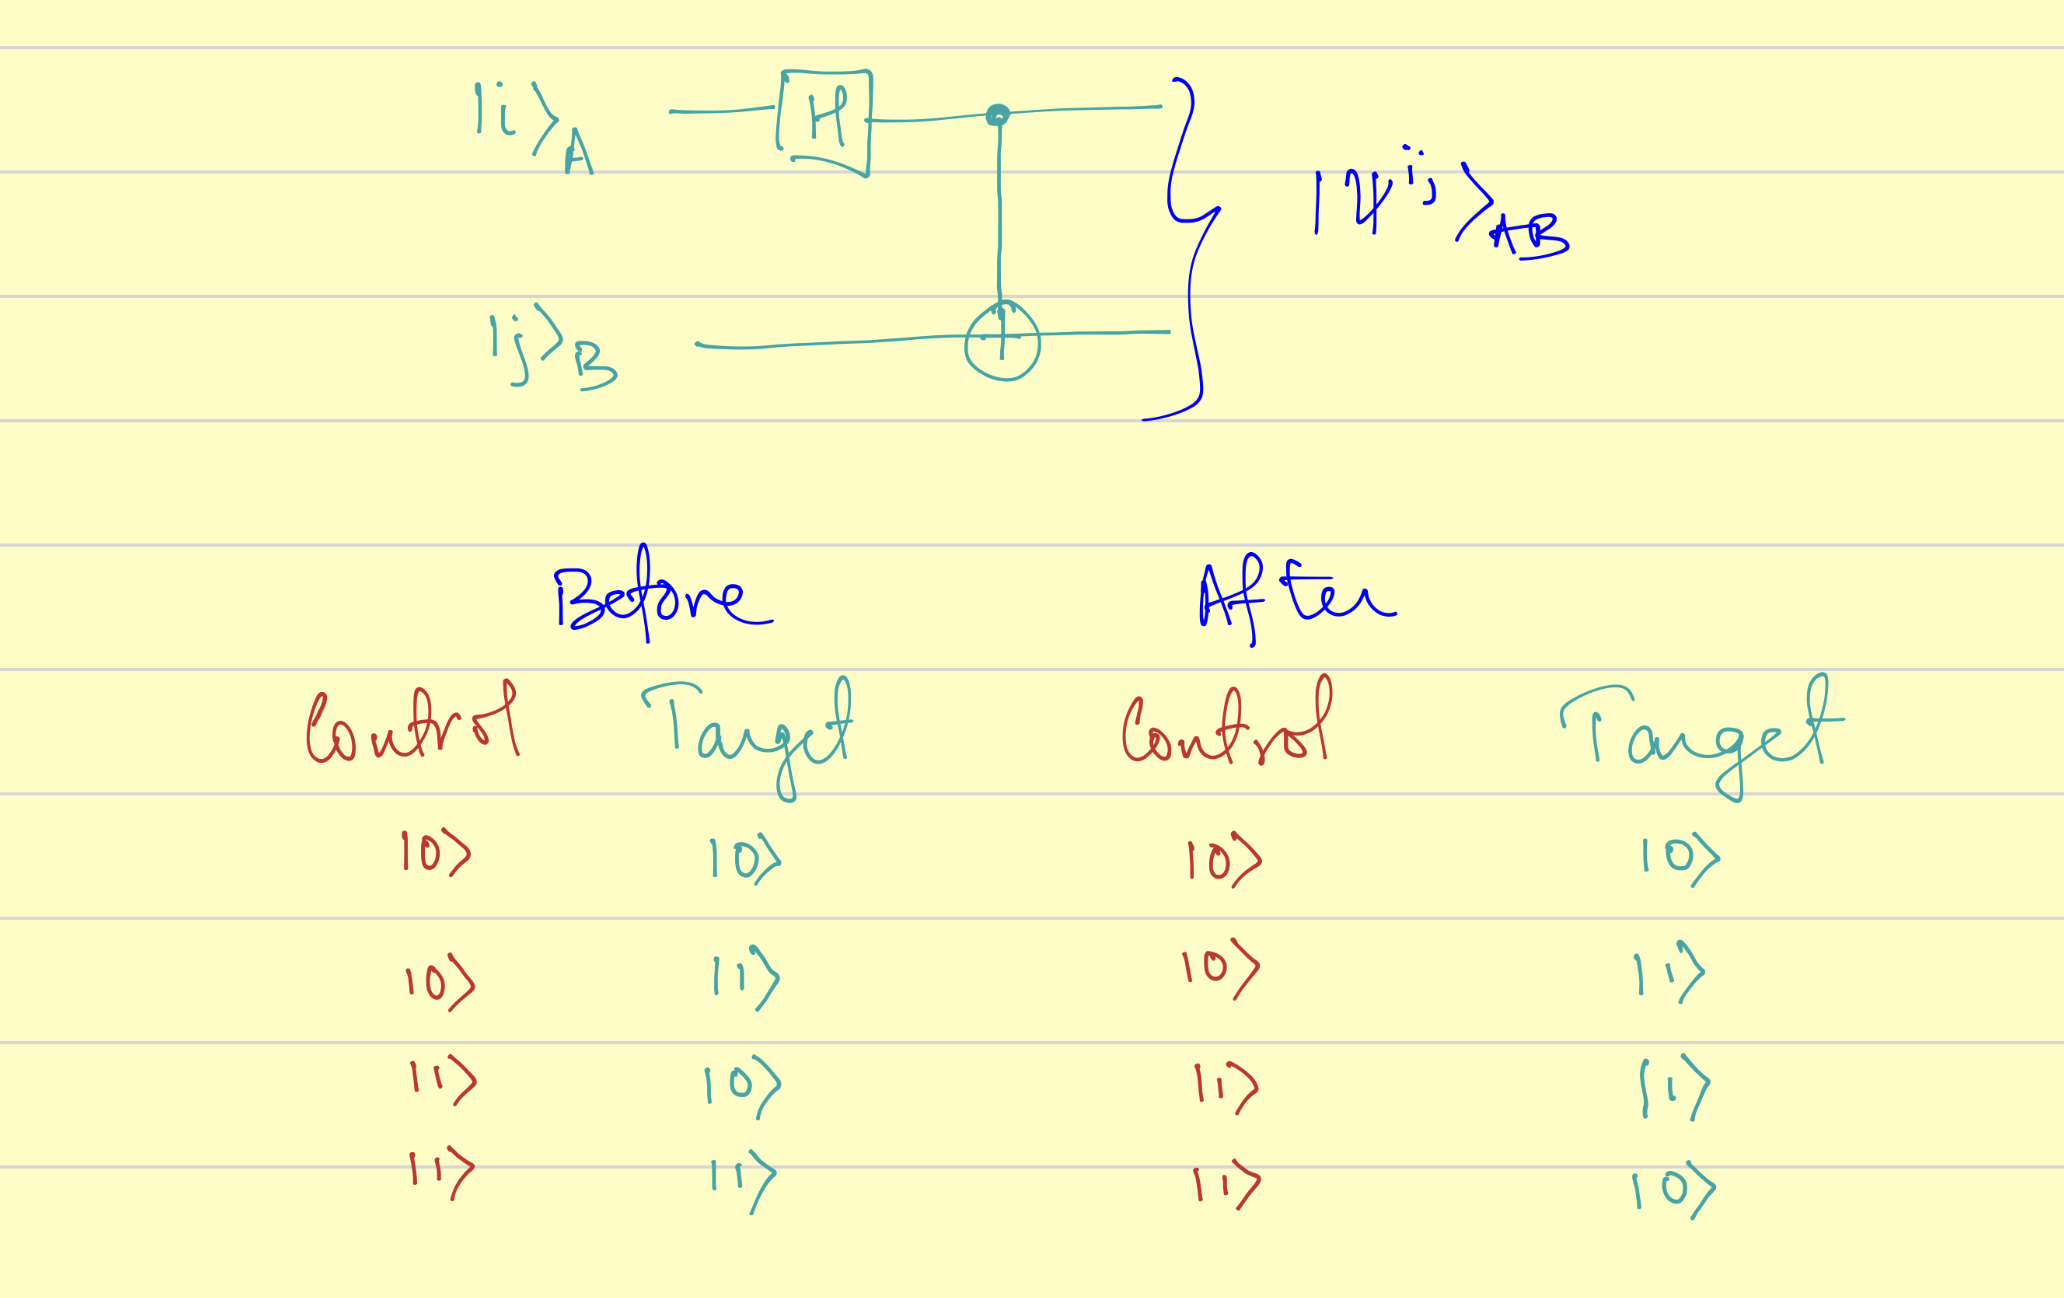 |i⟩_A H
|ψ^{ij}⟩_{AB}
|j⟩_B
Before After
Control Target Control Target
|0⟩ |0⟩ |0⟩ |0⟩
|0⟩ |1⟩ |0⟩ |1⟩
|1⟩ |0⟩ |1⟩ |1⟩
|1⟩ |1⟩ |1⟩ |0⟩